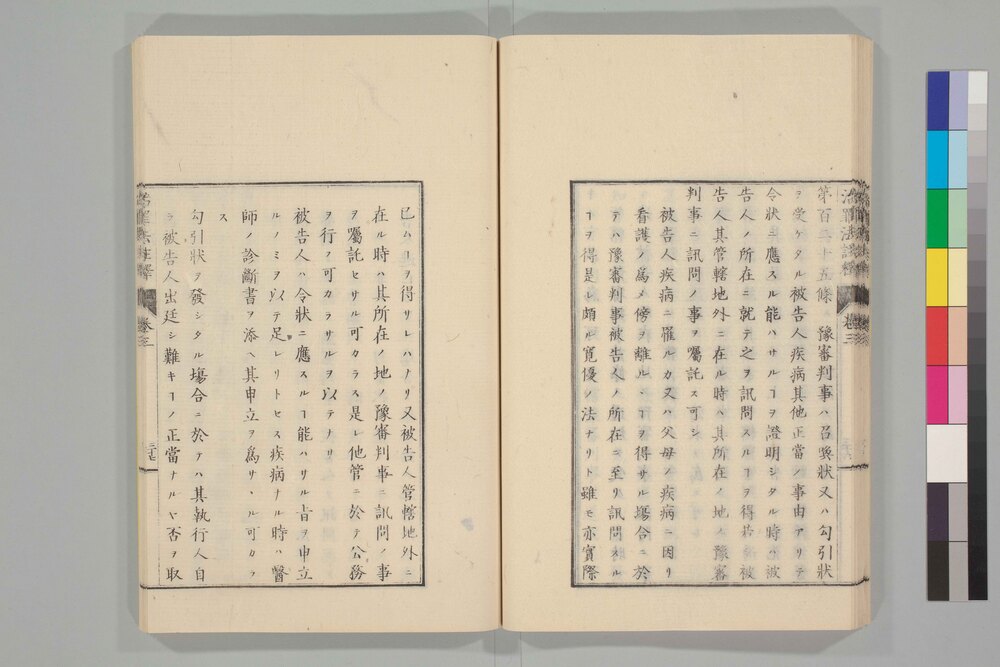 第百三十五條 豫審判事ハ召喚狀又ハ勾引狀
ヲ受ケタル被告人疾病其他正當ノ事由アリテ
令狀ニ應スル能ハサルヿヲ證明シタル時ハ被
告人ノ所在ニ就テ之ヲ訊問スルヿヲ得若シ被
告人其管轄地外ニ在ル時ハ其所在ノ地ノ豫審
判事ニ訊問ノ事ヲ囑託ス可シ
被告人疾病ニ罹ルカ又ハ父母ノ疾病ニ因リ
看護ノ爲メ傍ヲ離ルヽヿヲ得サル塲合ニ於
テハ豫審判事被告人ノ所在ニ至リ訊問スル
ヿヲ得是レ頗ル寬優ノ法ナリト雖モ亦實際
已ムヿヲ得サレハナリ又被告人管轄地外ニ
在ル時ハ其所在ノ地ノ豫審判事ニ訊問ノ事
ヲ囑託セサル可カラス是レ他管ニ於テ公務
ヲ行フ可カラサルヲ以テナリ
被告人ハ令狀ニ應スルヿ能ハサル旨ヲ申立
ルノミヲ以テ足レリトセス疾病ナル時ハ醫
師ノ診斷書ヲ添ヘ其申立ヲ爲サヽル可カラ
ス
勾引狀ヲ發シタル塲合ニ於テハ其執行人自
ラ被告人出廷シ難キヿノ正當ナルヤ否ヲ取
治罪法註釋 卷三